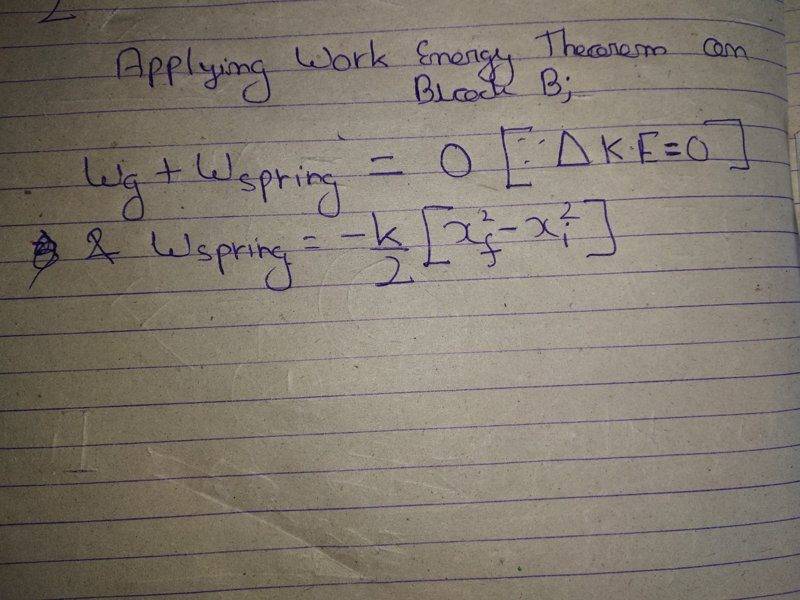 Applying Work Energy Theorem on
Block B;
Wg + Wspring = 0 [∵ ΔK.E=0]
& Wspring = -k/2 [x_f^2 - x_i^2]